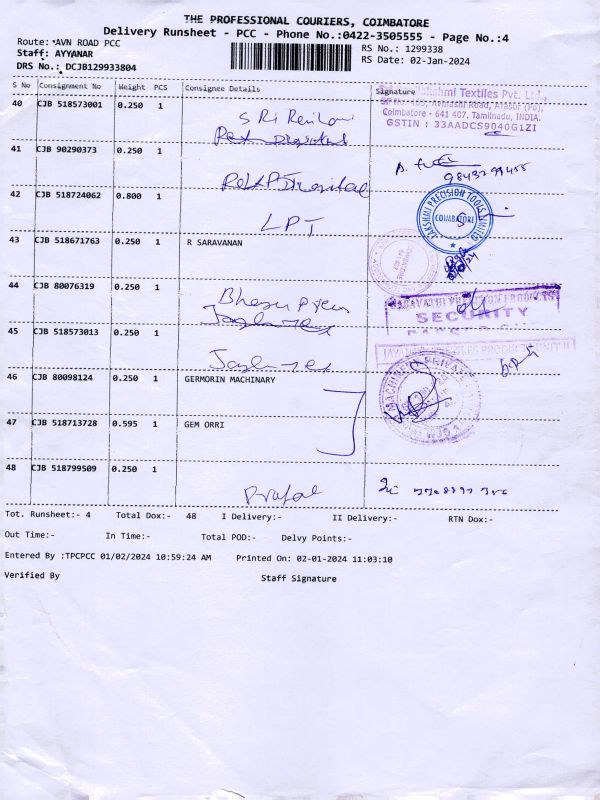 THE PROFESSIONAL COURIERS, COIMBATORE
Delivery Runsheet - PCC - Phone No.:0422-3505555 - Page No.:4
Route: AVN ROAD PCC
RS No.: 1299338
Staff: AYYANAR
RS Date: 02-Jan-2024
DRS No.: DCJB129933804
S No Consignment No Weight PCS Consignee Details Signature
Textiles Pvt. Ltd.,
Avinashi Road, Arasur (Po),
Coimbatore - 641 407. Tamilnadu, INDIA.
GSTIN : 33AADCS9040G1ZI
40 CJB 518573001 0.250 1 SRi
41 CJB 90290373 0.250 1
Hospital
42 CJB 518724062 0.800 1 LPT
LAKSHMI PRECISION TOOLS LIMITED
COIMBATORE
43 CJB 518671763 0.250 1 R SARAVANAN
44 CJB 80076319 0.250 1
SECURITY
45 CJB 518573013 0.250 1
46 CJB 80098124 0.250 1 GERMORIN MACHINARY
47 CJB 518713728 0.595 1 GEM ORRI
48 CJB 518799509 0.250 1
Tot. Runsheet:- 4 Total Dox:- 48 I Delivery:- II Delivery:- RTN Dox:-
Out Time:- In Time:- Total POD:- Delvy Points:-
Entered By :TPCPCC 01/02/2024 10:59:24 AM Printed On: 02-01-2024 11:03:10
Verified By Staff Signature